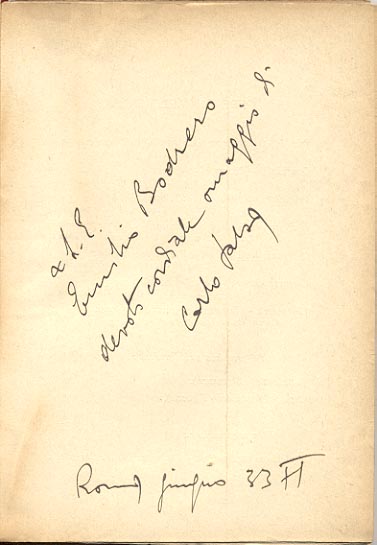 a S. E.
Emilio Bodrero
devoto cordiale omaggio di
Carlo
Roma giugno 33 XI